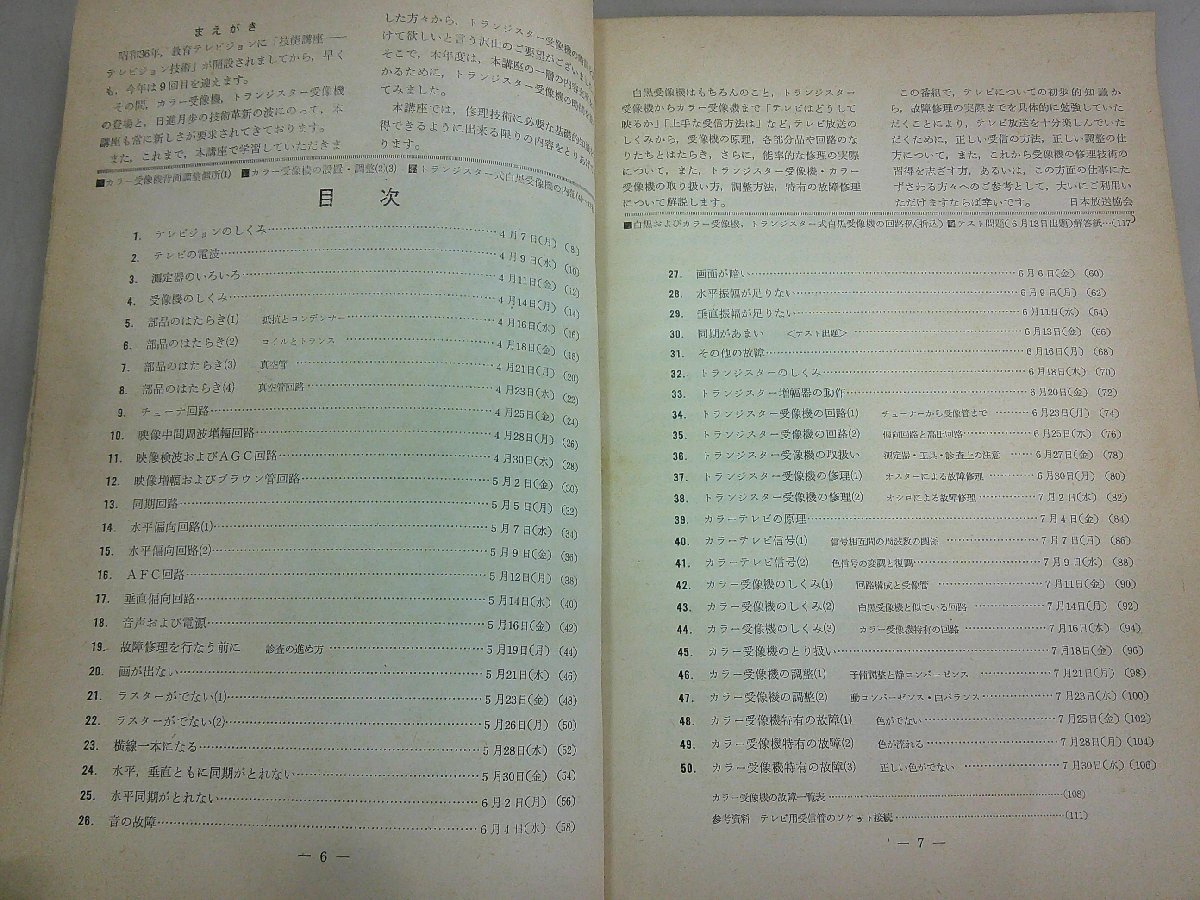 まえがき
昭和36年，教育テレビジョンに「技能講座――
テレビジョン技術」が開設されましてから，早く
も，今年は9回目を迎えます。
その間，カラー受像機，トランジスター受像機
の登場と，日進月歩の技術革新の波にのって，本
講座も常に新しさが要求されてきております。
また，これまで，本講座で学習していただきま
した方々から，トランジスター受像機の
けて欲しいと言う沢山のご要望がございました
そこで，本年度は，本講座の一層の内容充実を
かるために，トランジスター受像機の時間を
てみました。
本講座では，修理技術に必要な基礎的知識が
得できるように出来る限りの内容をとりあげ
ります。
■カラー受像機背面調整個所(1) ■カラー受像機の設置・調整(2)(3) ■トランジスター式白黒受像機の内部
目次
1. テレビジョンのしくみ……4月7日(月) (8)
2. テレビの電波……4月9日(水) (10)
3. 測定器のいろいろ……4月11日(金) (12)
4. 受像機のしくみ……4月14日(月) (14)
5. 部品のはたらき(1) 抵抗とコンデンサー……4月16日(水) (16)
6. 部品のはたらき(2) コイルとトランス……4月18日(金) (18)
7. 部品のはたらき(3) 真空管……4月21日(月) (20)
8. 部品のはたらき(4) 真空管回路……4月23日(水) (22)
9. チューナ回路……4月25日(金) (24)
10. 映像中間周波増幅回路……4月28日(月) (26)
11. 映像検波およびAGC回路……4月30日(水) (28)
12. 映像増幅およびブラウン管回路……5月2日(金) (30)
13. 同期回路……5月5日(月) (32)
14. 水平偏向回路(1)……5月7日(水) (34)
15. 水平偏向回路(2)……5月9日(金) (36)
16. AFC回路……5月12日(月) (38)
17. 垂直偏向回路……5月14日(水) (40)
18. 音声および電源……5月16日(金) (42)
19. 故障修理を行なう前に 診査の進め方……5月19日(月) (44)
20. 画が出ない……5月21日(水) (46)
21. ラスターがでない(1)……5月23日(金) (48)
22. ラスターがでない(2)……5月26日(月) (50)
23. 横線一本になる……5月28日(水) (52)
24. 水平，垂直ともに同期がとれない……5月30日(金) (54)
25. 水平同期がとれない……6月2日(月) (56)
26. 音の故障……6月4日(水) (58)
― 6 ―
白黒受像機はもちろんのこと，トランジスター
受像機からカラー受像機まで「テレビはどうして
映るか」「上手な受信方法は」など，テレビ放送の
しくみから，受像機の原理，各部分品や回路のな
りたちとはたらき，さらに，能率的な修理の実際
について，また，トランジスター・カラー
受像機の取り扱い方，調整方法，特有の故障修理
について解説します。
この番組で，テレビについての初歩的知識か
ら，故障修理の実際までを具体的に勉強していた
だくことにより，テレビ放送を十分楽しんでいた
だくために，正しい受信の方法，正しい調整の仕
方について，また，これから受像機の修理技術の
習得を志ざす方，あるいは，この方面の仕事にた
ずさわる方々へのご参考として，大いにご利用い
ただけますならば幸いです。 日本放送協会
■白黒およびカラー受像機，トランジスター式白黒受像機の回路図(折込) ■テスト問題(6月13日出題)解答紙…(117)
27. 画面が暗い……6月6日(金) (60)
28. 水平振幅が足りない……6月9日(月) (62)
29. 垂直振幅が足りない……6月11日(水) (64)
30. 同期があまい <テスト出題>……6月13日(金) (66)
31. その他の故障……6月16日(月) (68)
32. トランジスターのしくみ……6月18日(水) (70)
33. トランジスター増幅器の動作……6月20日(金) (72)
34. トランジスター受像機の回路(1) チューナーから受像管まで……6月23日(月) (74)
35. トランジスター受像機の回路(2) 偏向回路と高圧回路……6月25日(水) (76)
36. トランジスター受像機の取扱い 測定器・工具・診査上の注意……6月27日(金) (78)
37. トランジスター受像機の修理(1) オスターによる故障修理……6月30日(月) (80)
38. トランジスター受像機の修理(2) オシロによる故障修理……7月2日(水) (82)
39. カラーテレビの原理……7月4日(金) (84)
40. カラーテレビ信号(1) 信号相互間の周波数の関係……7月7日(月) (86)
41. カラーテレビ信号(2) 色信号の変調と復調……7月9日(水) (88)
42. カラー受像機のしくみ(1) 回路構成と受像管……7月11日(金) (90)
43. カラー受像機のしくみ(2) 白黒受像機と似ている回路……7月14日(月) (92)
44. カラー受像機のしくみ(3) カラー受像機特有の回路……7月16日(水) (94)
45. カラー受像機のとり扱い……7月18日(金) (96)
46. カラー受像機の調整(1) 予備調整と静コンバーゼンス……7月21日(月) (98)
47. カラー受像機の調整(2) 動コンバーゼンス・白バランス……7月23日(水) (100)
48. カラー受像機特有の故障(1) 色がでない……7月25日(金) (102)
49. カラー受像機特有の故障(2) 色が流れる……7月28日(月) (104)
50. カラー受像機特有の故障(3) 正しい色がでない……7月30日(水) (106)
カラー受像機の故障一覧表……(108)
参考資料 テレビ用受信管のソケット接続……(111)
― 7 ―